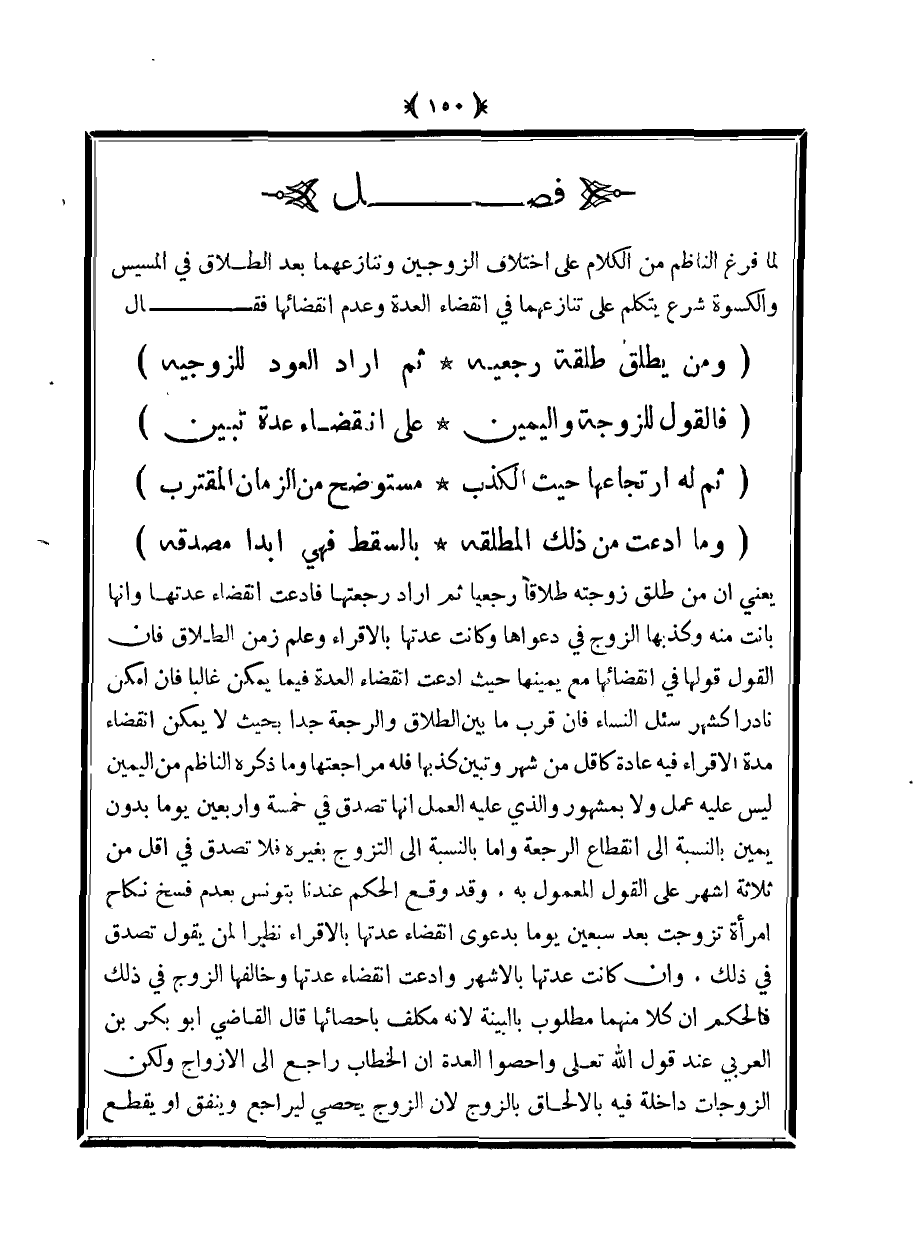 ﴿ ١٥٠ ﴾
فصل
لما فرغ الناظم من الكلام على اختلاف الزوجين وتنازعهما بعد الطلاق في المسيس
والكسوة شرع يتكلم على تنازعهما في انقضاء العدة وعدم انقضائها فقال
( ومن يطلق طلقة رجعيه * ثم اراد العود للزوجيه )
( فالقول للزوجة واليمين * على انقضاء عدة تبين )
( ثم له ارتجاعها حيث الكذب * مستوضح من الزمان المقترب )
( وما ادعت من ذلك المطلقه * بالسقط فهي ابدا مصدقه )
يعني ان من طلق زوجته طلاقاً رجعيا ثم اراد رجعتها فادعت انقضاء عدتها وانها
بانت منه وكذبها الزوج في دعواها وكانت عدتها بالاقراء وعلم زمن الطلاق فان
القول قولها في انقضائها مع يمينها حيث ادعت انقضاء العدة فيما يمكن غالبا فان امكن
نادرا كشهر سئل النساء فان قرب ما بين الطلاق والرجعة جدا بحيث لا يمكن انقضاء
مدة الاقراء فيه عادة كاقل من شهر وتبين كذبها فله مراجعتها وما ذكره الناظم من اليمين
ليس عليه عمل ولا بمشهور والذي عليه العمل انها تصدق في خمسة واربعين يوما بدون
يمين بالنسبة الى انقطاع الرجعة واما بالنسبة الى التزوج بغيره فلا تصدق في اقل من
ثلاثة اشهر على القول المعمول به . وقد وقع الحكم عندنا بتونس بعدم فسخ نكاح
امرأة تزوجت بعد سبعين يوما بدعوى انقضاء عدتها بالاقراء نظيرا لمن يقول تصدق
في ذلك . وان كانت عدتها بالاشهر وادعت انقضاء عدتها وخالفها الزوج في ذلك
فالحكم ان كلا منهما مطلوب بالبينة لانه مكلف باحصائها قال القاضي ابو بكر بن
العربي عند قول الله تعلى واحصوا العدة ان الخطاب راجع الى الازواج ولكن
الزوجات داخلة فيه بالالحاق بالزوج لان الزوج يحصي ليراجع وينفق او يقطع